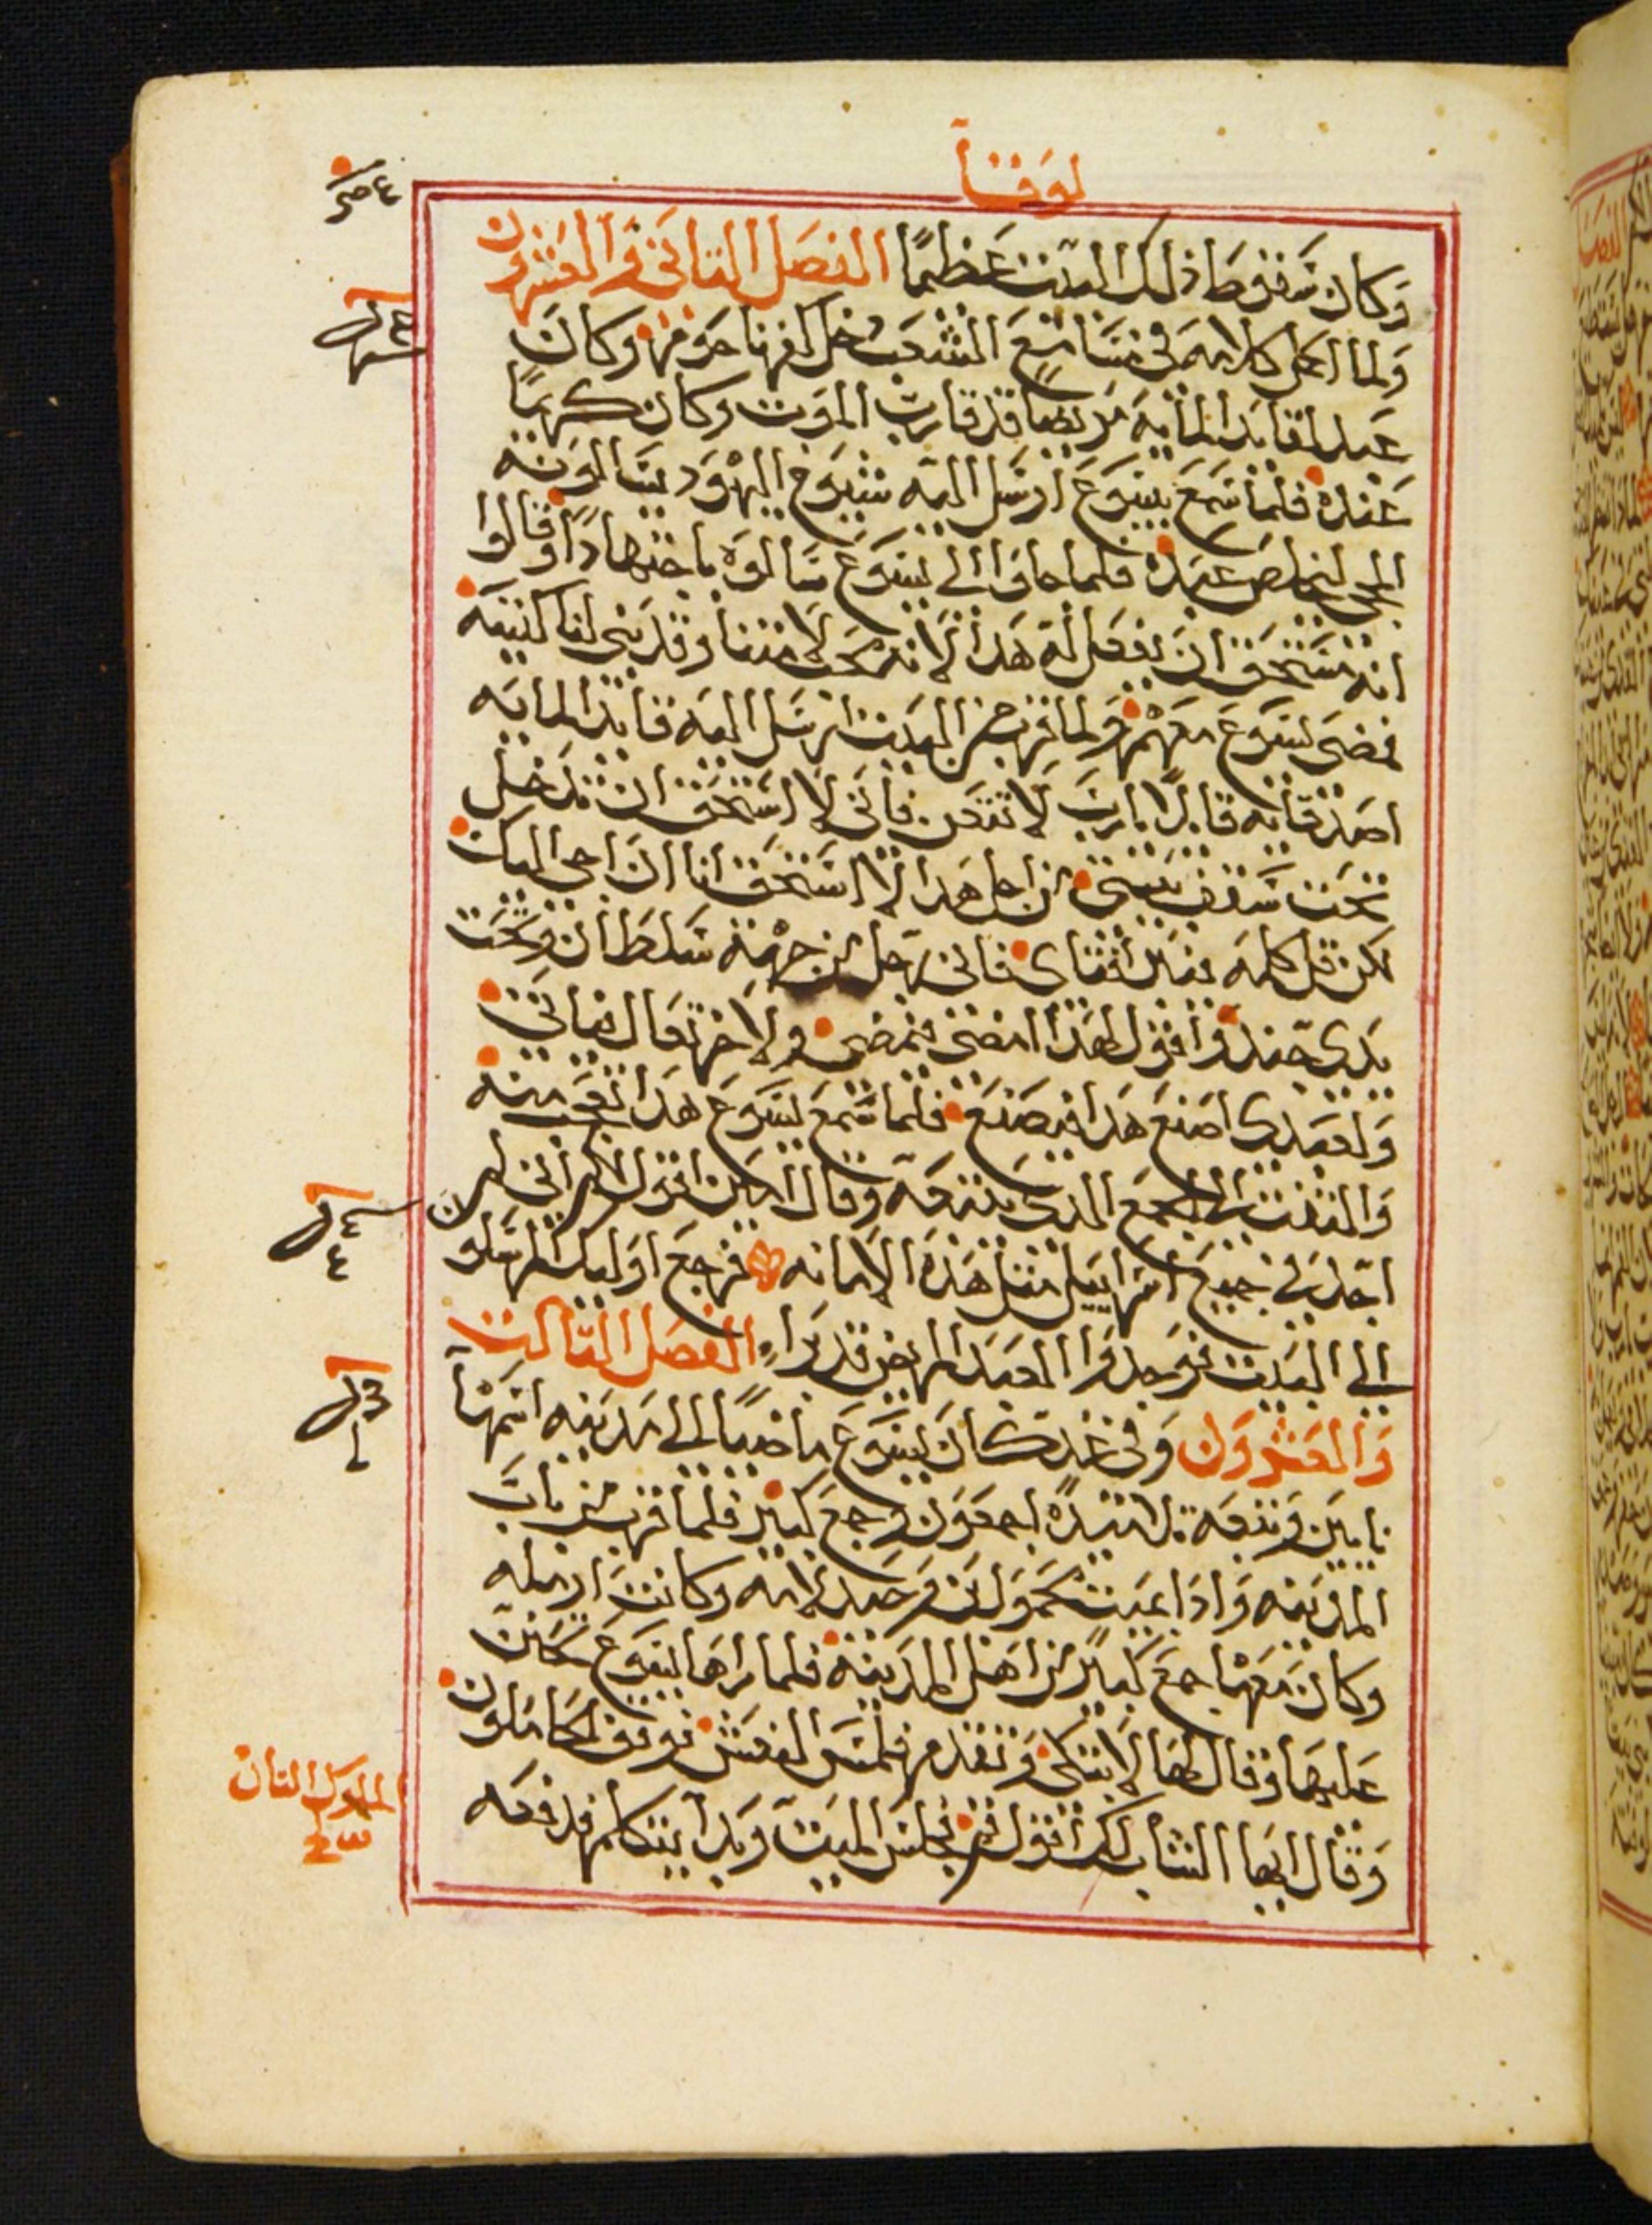 لوقا
وَكان سَقوط ذلك البَيت عَظيمًا الفصَل التاني وَالعَشرون
وَلما اكمل كلامه في مسَامع الشعَب دخل كفرناحوم وَكان
عَبد لقايد المايه مَريضا قد قارب الموت وكان كريمًا
عَنده فلما سَمع يسَوع ارسَل اليه شيوخ اليهوَد يسَالوَنه
المجي ليخلص عَبده فلما جاوا الي يسَوع سَالوَه باجتهادًا وقالوا
انه مسَتحق ان يفعَل له هَدا لانه محَب لامتنا وقد بني لنا كنيسَه
فمضى يسَوع معَهم وَلما قرب من البَيت ارسَل اليه قايد المايه
اصَدقايه قايلا يارب لا تتعَن فاني لا اسَتحق ان تدخل
تحَت سَقف بيتي من اجل هَدا لا اسَتحق انا ان اجي اليك
لكن قل كلمه فيبرا فتاي فاني رجل من جهة سَلطان وَتحَت
يدي جند وَاقول لهدا امضي فيمضي ولاخر تعال فياتي
وَلعَبدي اصنع هَدا فيصَنع فلما سَمع يسَوع هَدا تعَجب منه
وَالتفت الي الجمع الدي يتبعَه وقال امين اقول لكم اني لم
اجد في جميع اسَراييل مثل هَده الامانه فرجعَ اوَليك المرسَلون
الي البَيت فوَجدوَا العَبد المريض قد برا الفصَل التالت
وَالعَشرَون وَفي غد كان يسَوع ماضيًا الي مَدينه اسَمها
نايين وَتبعَه تلاميده اجمعَون وجمع كبير فلما قرب من باب
المدينه وَادا بميت محَموَل ابن وَحيد لامه وكانت ارمله
وكان معَها جمع كبير من اهَل المدينة فلما راها يسوع تحَنن
عَليها وقال لها لا تبكي وَتقدم فلمس النعَش فوقف الحَاملون
وَقال ايها الشاب لك اقول قم فجلس الميت وَبدا يتكلم فدفعَه